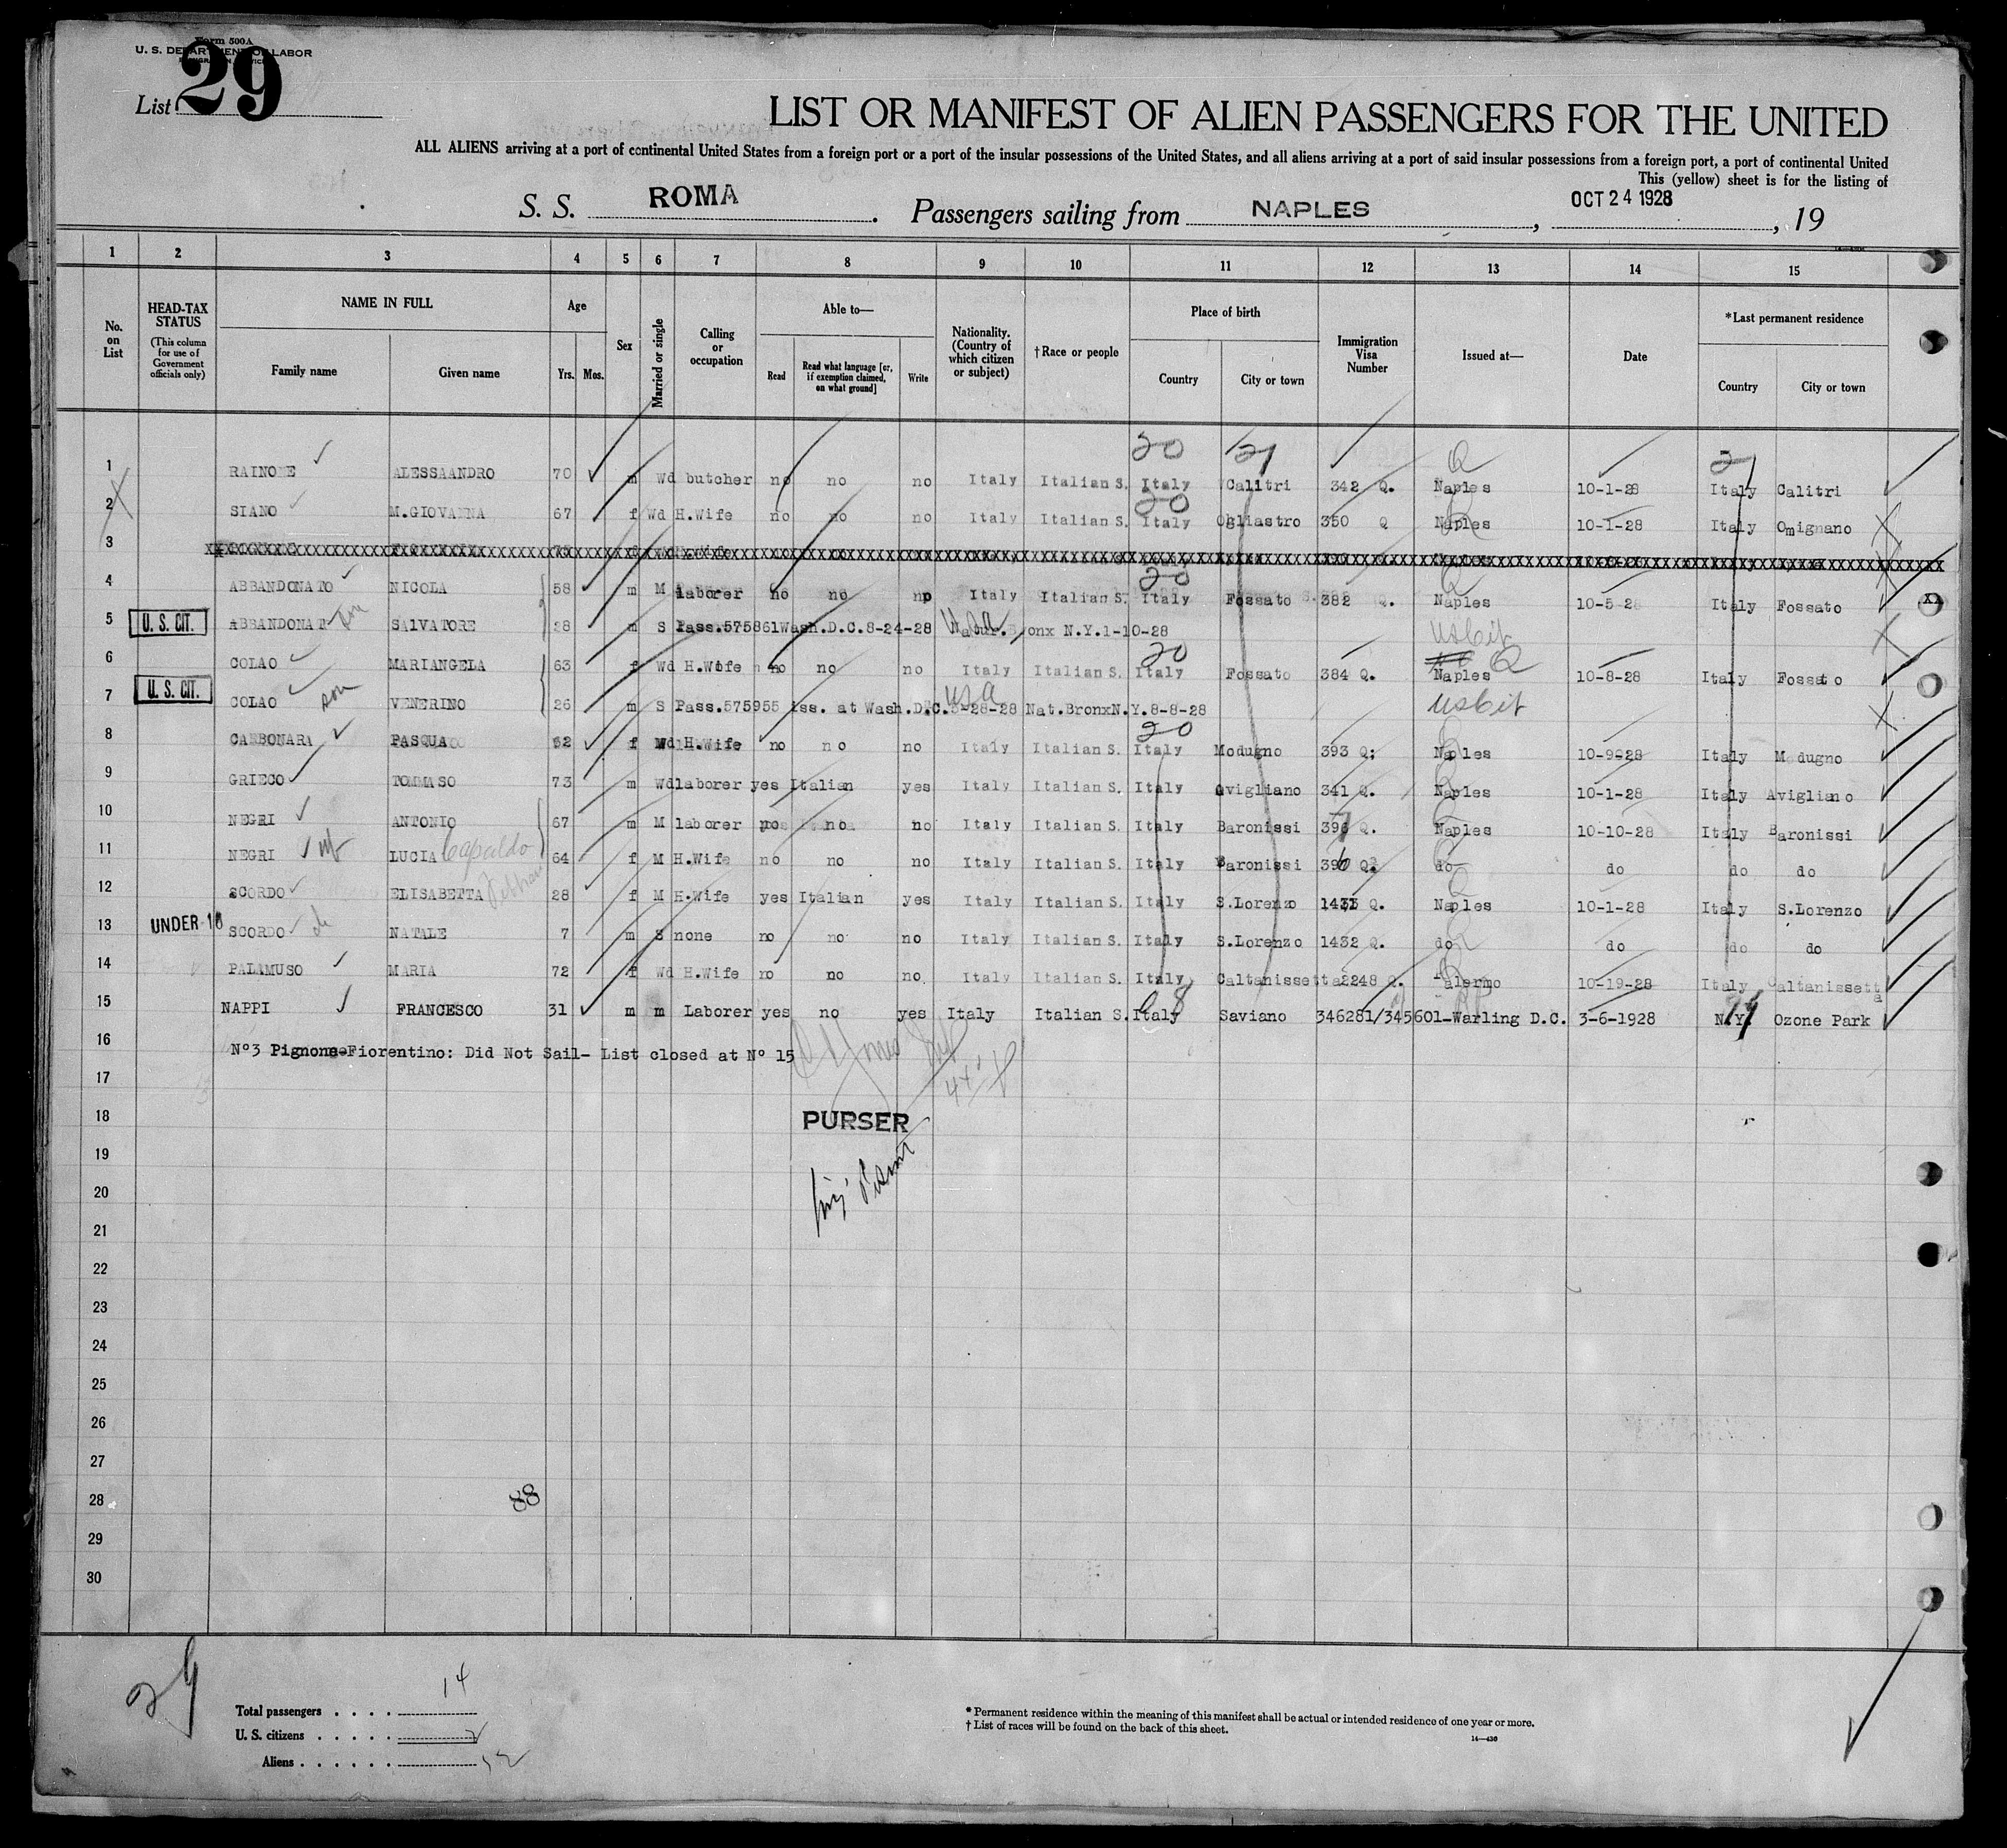 Form 500A
U. S. DEPARTMENT OF LABOR
List 29
LIST OR MANIFEST OF ALIEN PASSENGERS FOR THE UNITED
ALL ALIENS arriving at a port of continental United States from a foreign port or a port of the insular possessions of the United States, and all aliens arriving at a port of said insular possessions from a foreign port, a port of continental United
This (yellow) sheet is for the listing of
S. S. ROMA. Passengers sailing from NAPLES, OCT 24 1928, 19
1 2 3 4 5 6 7 8 9 10 11 12 13 14 15
No. on List
HEAD-TAX STATUS (This column for use of Government officials only)
NAME IN FULL Family name Given name
Age Yrs. Mos.
Sex
Married or single
Calling or occupation
Able to— Read Read what language [or, if exemption claimed, on what ground] Write
Nationality. (Country of which citizen or subject)
† Race or people
Place of birth Country City or town
Immigration Visa Number
Issued at—
Date
*Last permanent residence Country City or town
20 21 Q 2
1 RAINONE ALESSAANDRO 70 m Wd butcher no no no Italy Italian S. Italy Calitri 342 Q. Naples 10-1-28 Italy Calitri
20
2 SIANO M.GIOVANNA 67 f Wd H.Wife no no no Italy Italian S. Italy Ogliastro 350 Q Naples 10-1-28 Italy Omignano
3
20 Q
4 ABBANDONATO NICOLA 58 m M laborer no no no Italy Italian S. Italy Fossato 382 Q. Naples 10-5-28 Italy Fossato XX
5 U. S. CIT. ABBANDONAT son SALVATORE 28 m S Pass.575861 Wash.D.C.8-24-28 Natur. Bronx N.Y.1-10-28 USA UScit
20 Q
6 COLAO MARIANGELA 63 f Wd H.Wife no no no Italy Italian S. Italy Fossato 384 Q. Naples 10-8-28 Italy Fossato
7 U. S. CIT. COLAO son VENERINO 26 m S Pass.575955 iss. at Wash.D.C. -28-28 Nat.BronxN.Y.8-8-28 USA UScit
20
8 CARBONARA PASQUA 52 f Wd H.Wife no no no Italy Italian S. Italy Modugno 393 Q; Naples 10-9-28 Italy Modugno
9 GRIECO TOMMASO 73 m Wd laborer yes Italian yes Italy Italian S. Italy Avigliano 341 Q. Naples 10-1-28 Italy Avigliano
10 NEGRI ANTONIO 67 m M laborer no no no Italy Italian S. Italy Baronissi 397 Q. Naples 10-10-28 Italy Baronissi
11 NEGRI wf LUCIA Capaldo 64 f M H.Wife no no no Italy Italian S. Italy Baronissi 396 Q. do do do do
12 SCORDO ELISABETTA 28 f M H.Wife yes Italian yes Italy Italian S. Italy S.Lorenzo 1431 Q. Naples 10-1-28 Italy S.Lorenzo
13 UNDER-18 SCORDO NATALE 7 m S none no no no Italy Italian S. Italy S.Lorenzo 1432 Q. do do do do
14 PALAMUSO MARIA 72 f Wd H.Wife no no no Italy Italian S. Italy Caltanissetta 2248 Q. Palermo 10-19-28 Italy Caltanissetta
15 NAPPI FRANCESCO 31 m m Laborer yes no yes Italy Italian S. Italy Saviano 346281/345601-Warling D.C. 3-6-1928 N.Y. Ozone Park
16 Nº3 Pignone-Fiorentino: Did Not Sail- List closed at Nº 15
17
18 PURSER
19
20
21
22
23
24
25
26
27
28 88
29
30
29
Total passengers . . . . 14
U. S. citizens . . . . . 2
Aliens . . . . . . 12
* Permanent residence within the meaning of this manifest shall be actual or intended residence of one year or more.
† List of races will be found on the back of this sheet.
14—430